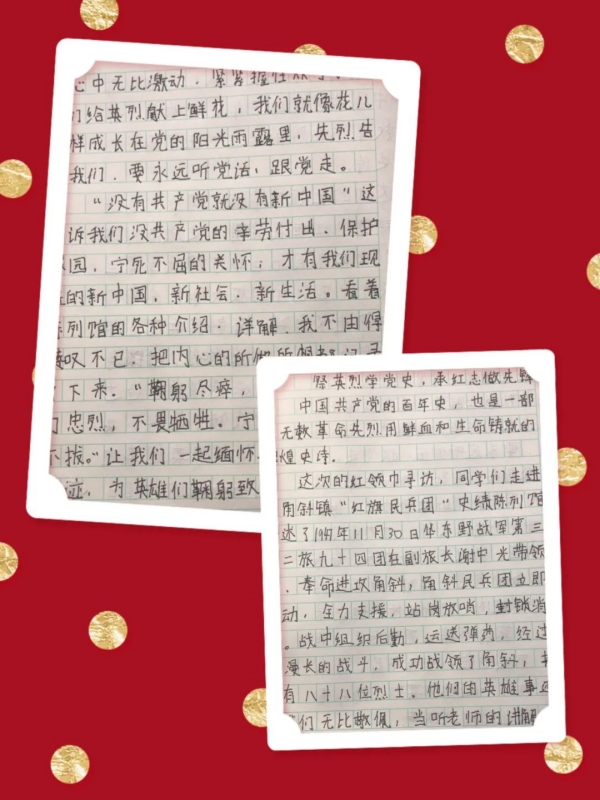 心中无比激动，紧紧握住双手。
们给英烈献上鲜花，我们就像花儿
样成长在党的阳光雨露里，先烈告
我们，要永远听党话，跟党走。
“没有共产党就没有新中国”这
诉我们没共产党的辛劳付出、保护
园，宁死不屈的关怀；才有我们现
的新中国，新社会，新生活。看着
列馆的各种介绍、详解，我不由得
叹不已，把内心的所
下来。“鞠躬尽瘁，
忠烈，不畏牺牲。宁
不拔。”让我们一起缅怀
迹，为英雄们鞠躬致
祭英烈学党史，承红志做先锋
中国共产党的百年史，也是一部
无数革命先烈用鲜血和生命铸就的
煌史诗。
这次的红领巾寻访，同学们走进
角斜镇“红旗民兵团”史绩陈列馆
述了1947年11月30日华东野战军第三
二旅九十四团在副旅长谢中光带领
，奉命进攻角斜，角斜民兵团立即
动，全力支援，站岗放哨，封锁消
。战中组织后勤，运送弹药，经过
漫长的战斗，成功战领了角斜，
有八十八位烈士。他们的英雄事迹
们无比敬佩，当听老师的讲解